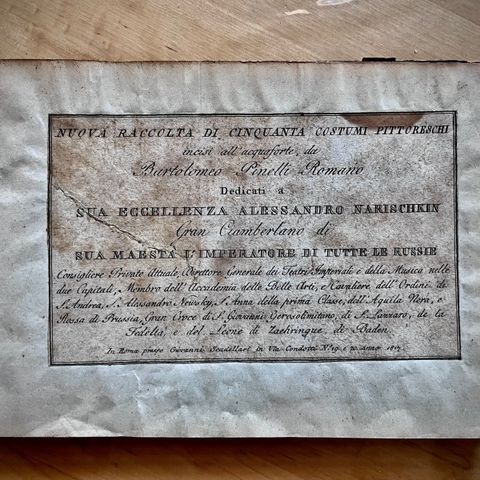 NUOVA RACCOLTA DI CINQUANTA COSTUMI PITTORESCHI
incisi all'acquaforte, da
Bartolomeo Pinelli Romano
Dedicati a
SUA ECCELLENZA ALESSANDRO NARISCHKIN
Gran Ciamberlano di
SUA MAESTA L'IMPERATORE DI TUTTE LE RUSSIE
Consigliere Privato Attuale, Direttore Generale dei Teatri Imperiali e della Musica nelle
due Capitali, Membro dell'Accademia delle Belle Arti, e Cavaliere dell'Ordini di
S. Andrea, S. Alessandro Newsky, S. Anna della prima Classe, dell'Aquila Nera, e
Rossa di Prussia, Gran Croce di S. Giovanni Gerosolimitano, di S. Lazzaro, de la
Fedeltà, e del Leone di Zaehringue, di Baden.
In Roma presso Giovanni Scudellari in Via Condotti N.º 19. e 20. Anno 1817.